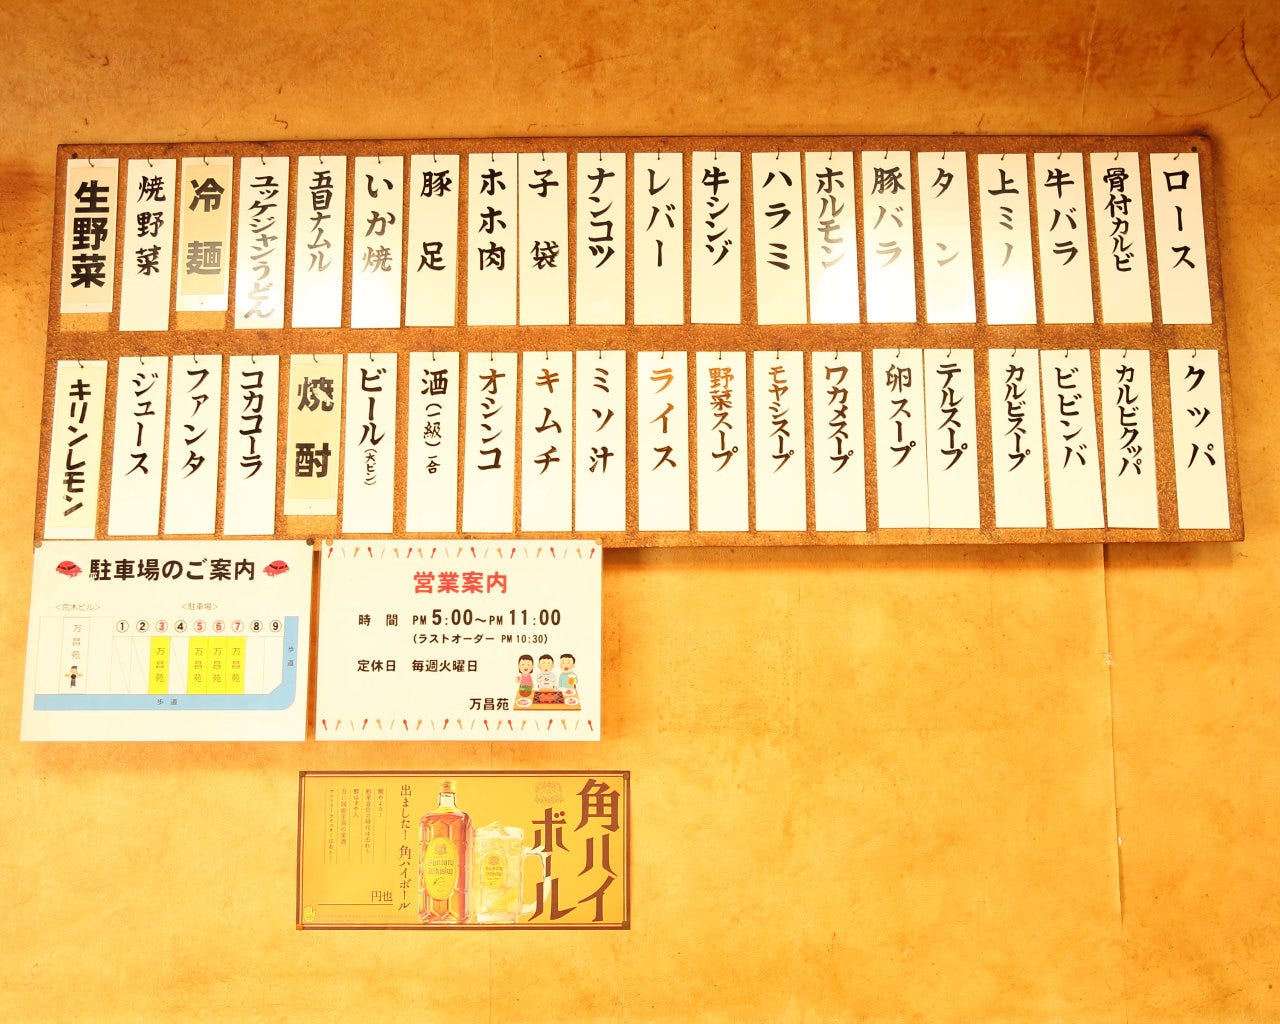 ロース
骨付カルビ
牛バラ
上ミノ
タン
豚バラ
ホルモン
ハラミ
牛シンゾ
レバー
ナンコツ
子袋
ホホ肉
豚足
いか焼
五目ナムル
ユッケジャンうどん
冷麺
焼野菜
生野菜
クッパ
カルビクッパ
ビビンバ
カルビスープ
テルスープ
卵スープ
ワカメスープ
モヤシスープ
野菜スープ
ライス
ミソ汁
キムチ
オシンコ
酒(二級)一合
ビール(大ビン)
焼酎
コカコーラ
ファンタ
ジュース
キリンレモン
駐車場のご案内
<荒木ビル>
<駐車場>
万昌苑
① ② ③ ④ ⑤ ⑥ ⑦ ⑧ ⑨
万昌苑
万昌苑
万昌苑
万昌苑
歩道
歩道
営業案内
時間 PM 5:00～PM 11:00
(ラストオーダー PM 10:30)
定休日 毎週火曜日
万昌苑
角ハイ
ボール
Suntory
Whisky
出ました! 角ハイボール
円也